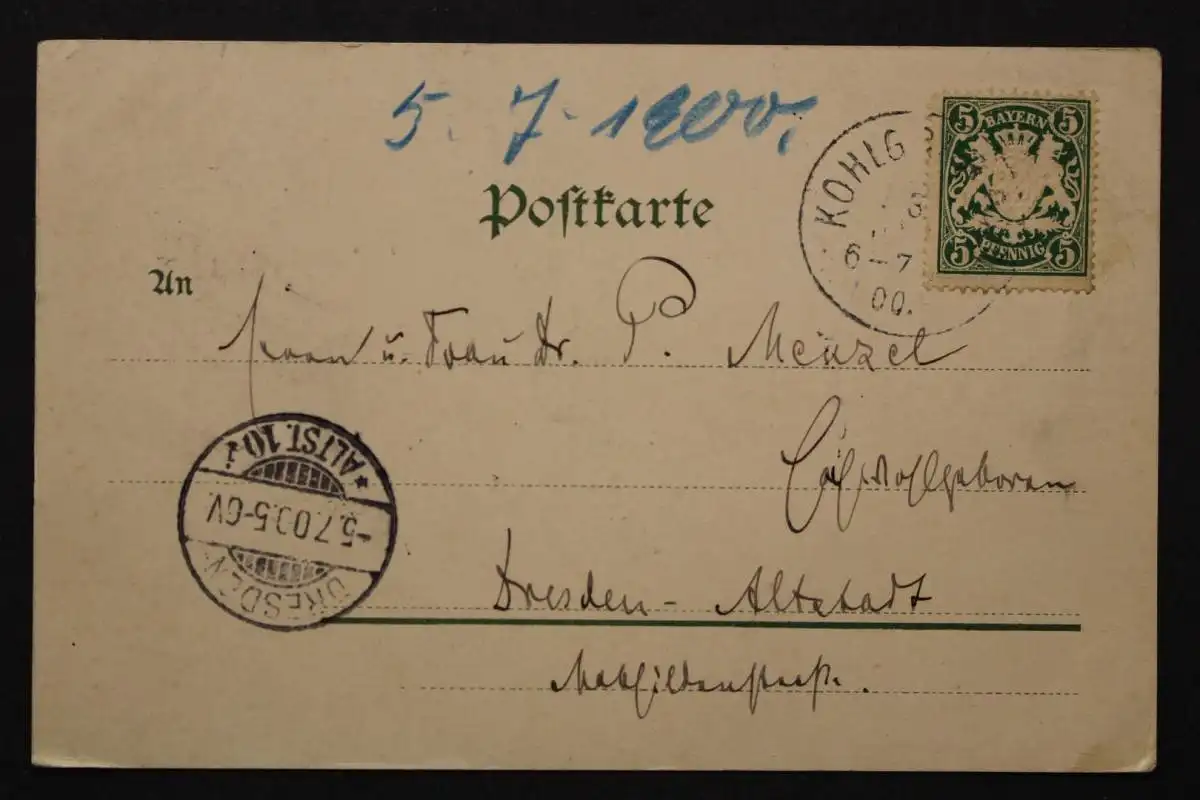 5. 7. 1900.
Postkarte
KOHLG
6-7
00.
5 BAYERN 5
5 PFENNIG 5
An
Herrn u. Frau Dr. P. Menzel
Hochwohlgeboren
DRESDEN
-5.7.00.5-6V
*ALTST.10
Dresden-Altstadt
Mathildenstraße.